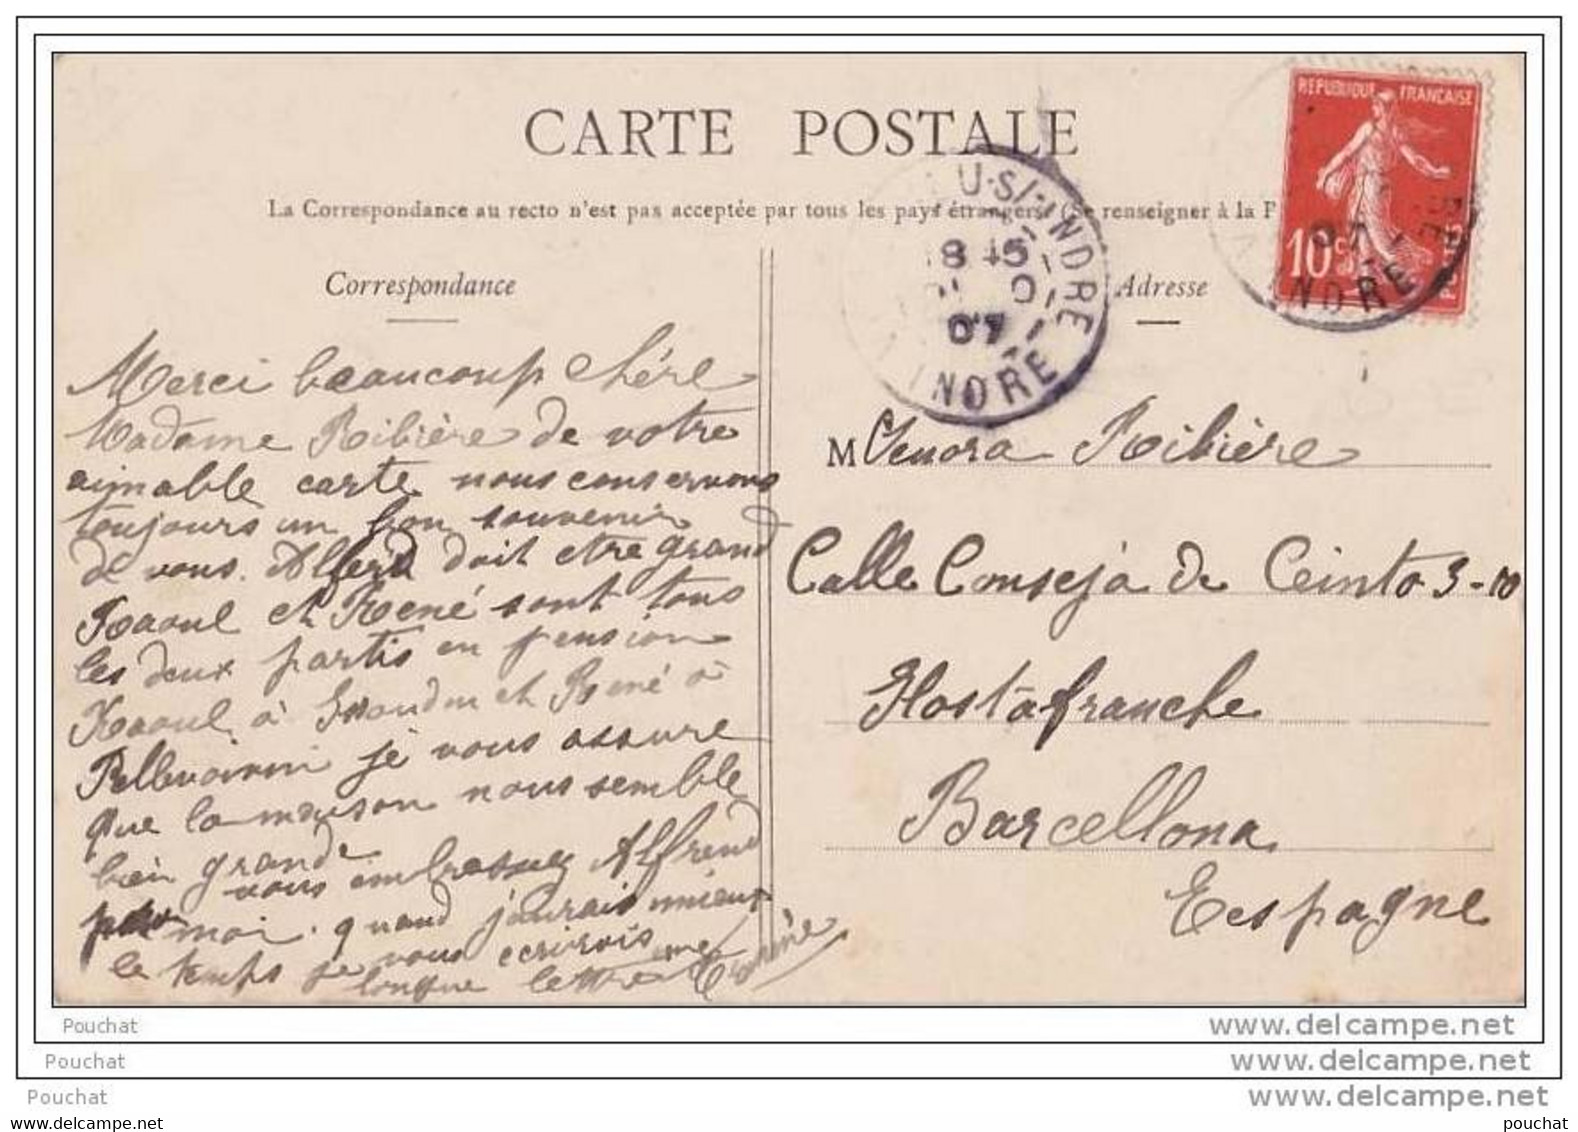 CARTE POSTALE
La Correspondance au recto n'est pas acceptée par tous les pays étrangers (Se renseigner à la P
REPUBLIQUE FRANÇAISE
10c
U-S/-INDRE
8 45
07
INDRE
INDRE
Correspondance
Adresse
Merci beaucoup chére
Madame Ribière de votre
aimable carte nous conservons
toujours un bon souvenir
de vous. Alfred doit etre grand
Raoul et René sont tous
les deux partis en pension
Raoul à Issoudun et René à
Pellevoisin je vous assure
que la maison nous semble
bien grande
vous embrassez Alfred
pour moi. quand j'aurais mieux
le temps je vous ecrirois une
longue lettre
M Senora Ribière
Calle Conseja de Ceinto 3-10
Hostafranche
Barcellona
Espagne
Pouchat
Pouchat
Pouchat
www.delcampe.net
www.delcampe.net
www.delcampe.net
www.delcampe.net
pouchat